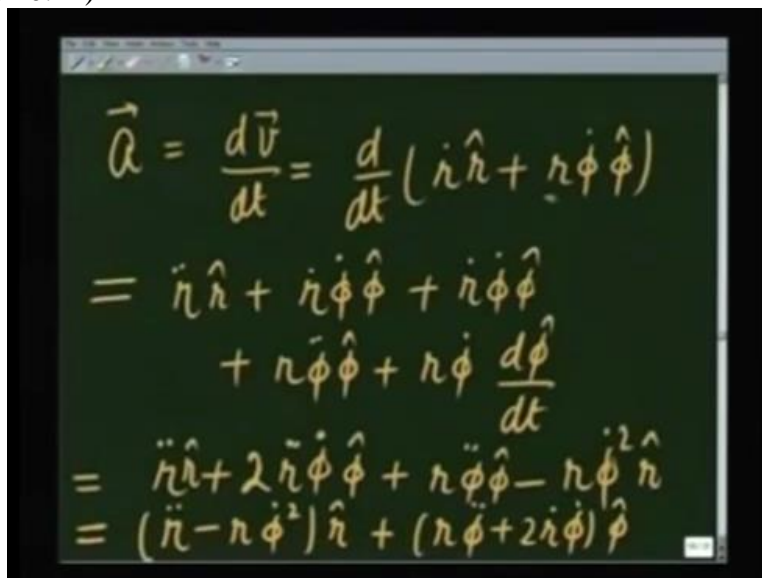 \vec{a} = \frac{d\vec{v}}{dt} = \frac{d}{dt} ( \dot{r}\hat{r} + r\dot{\phi}\hat{\phi} )
= \ddot{r}\hat{r} + \dot{r}\dot{\phi}\hat{\phi} + \dot{r}\dot{\phi}\hat{\phi}
+ r\ddot{\phi}\hat{\phi} + r\dot{\phi} \frac{d\hat{\phi}}{dt}
= \ddot{r}\hat{r} + 2\dot{r}\dot{\phi}\hat{\phi} + r\ddot{\phi}\hat{\phi} - r\dot{\phi}^2\hat{r}
= (\ddot{r} - r\dot{\phi}^2)\hat{r} + (r\ddot{\phi} + 2\dot{r}\dot{\phi})\hat{\phi}